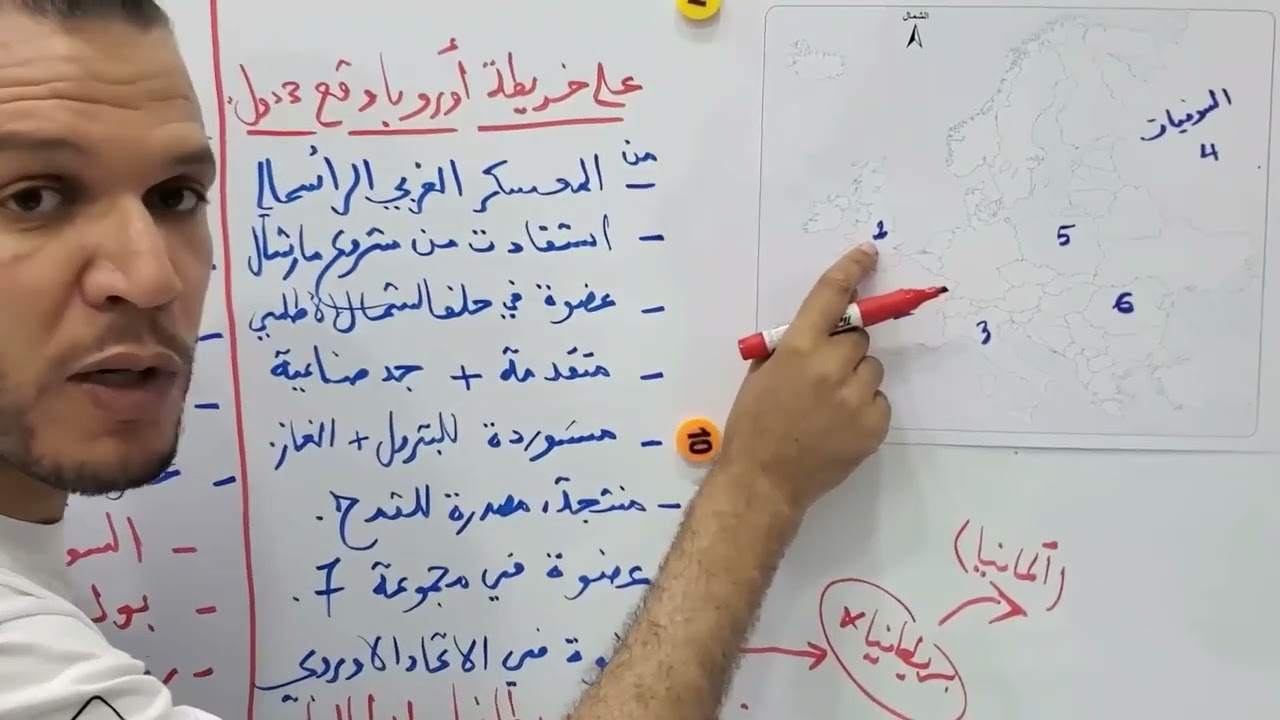 على خريطة أوروبا وقع 3 دول:
من
- المعسكر الغربي الرأسمالي
- استفادت من مشروع مارشال
- عضوة في حلف الشمال الأطلسي
- متقدمة + جد صناعية
- مستوردة للبترول + الغاز.
- منتجة، مصدرة للقمح.
عضوة في مجموعة 7.
وة في الاتحاد الاوروبي
بريطانيا ×
(ألمانيا)
الشمال
السوفيات
4
1
5
6
3
10
- السو
- بول